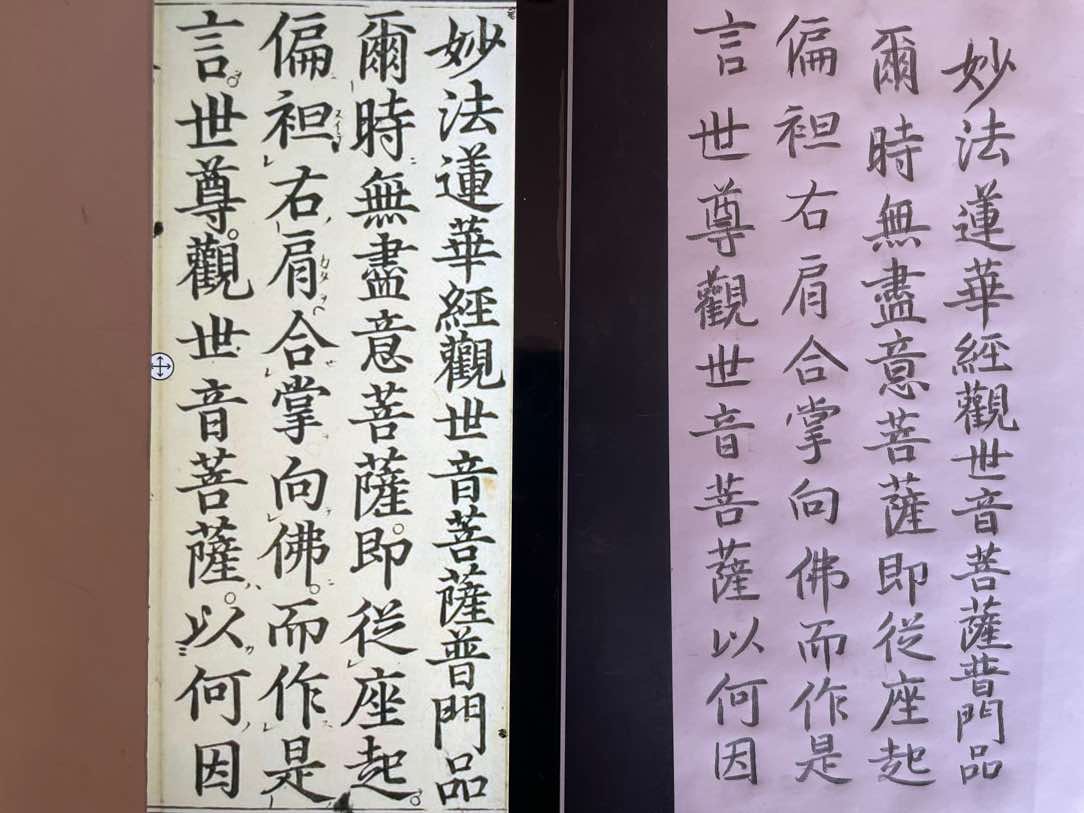 妙法蓮華經觀世音菩薩普門品
爾時無盡意菩薩。即從座起。
偏袒右肩合掌向佛。而作是
言。世尊。觀世音菩薩。以何因
妙法蓮華經觀世音菩薩普門品
爾時無盡意菩薩即從座起
偏袒右肩合掌向佛而作是
言世尊觀世音菩薩以何因